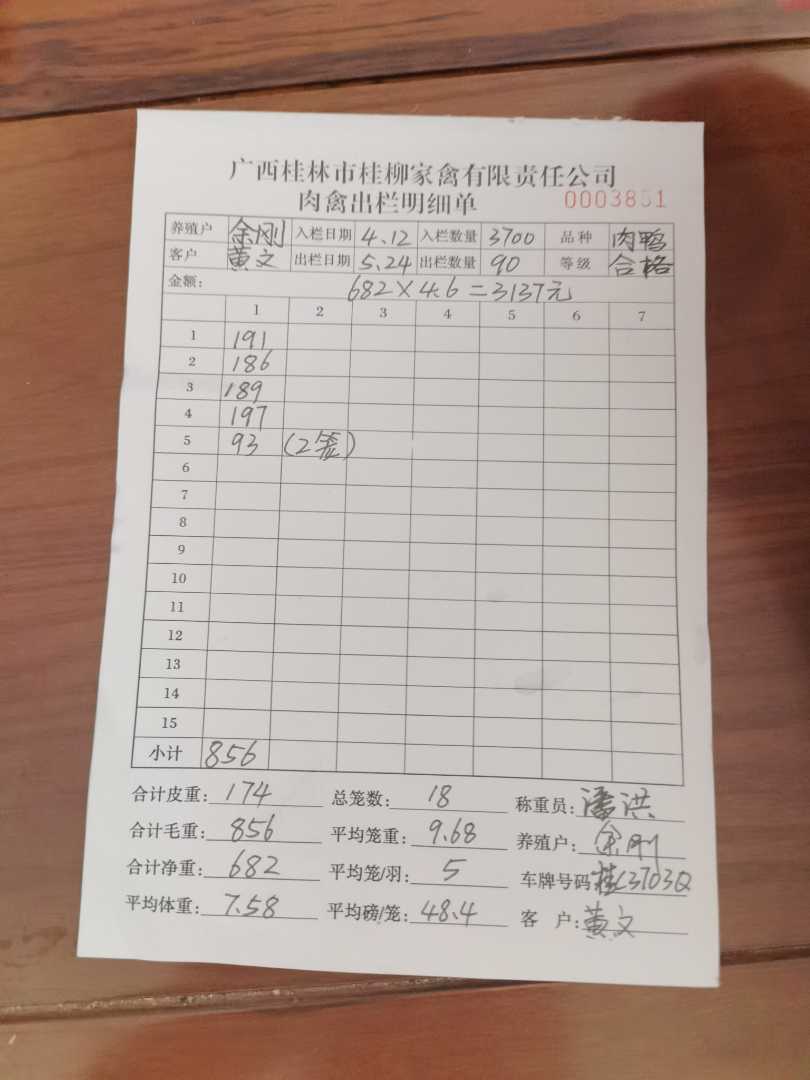 广西桂林市桂柳家禽有限责任公司
肉禽出栏明细单 0003851
养殖户 余刚 入栏日期 4.12 入栏数量 3700 品种 肉鸭
客户 黄文 出栏日期 5.24 出栏数量 90 等级 合格
金额: 682×4.6=3137元
1 2 3 4 5 6 7
1 191
2 186
3 189
4 197
5 93 (2笼)
6
7
8
9
10
11
12
13
14
15
小计 856
合计皮重: 174 总笼数: 18 称重员: 潘洪
合计毛重: 856 平均笼重: 9.68 养殖户: 余刚
合计净重: 682 平均笼/羽: 5 车牌号码 桂C3703Q
平均体重: 7.58 平均磅/笼: 48.4 客 户: 黄文